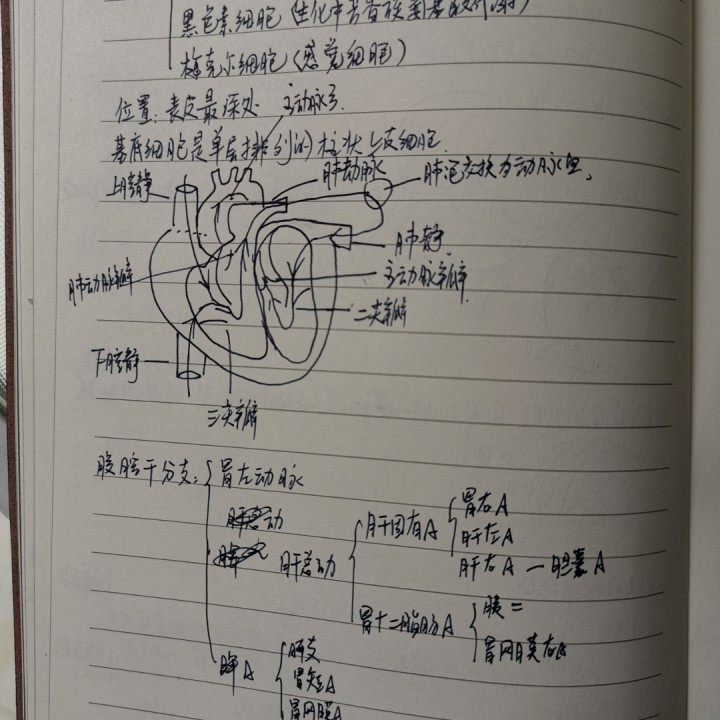 黑色素细胞（生化中芳香族
梅克尔细胞（感觉细胞）
位置：表皮最深处
主动脉弓
基底细胞是单层排列的柱状上皮细胞.
上腔静
肺动脉
肺泡交换为动脉血,
肺静
肺动脉瓣
主动脉瓣
二尖瓣
下腔静
三尖瓣
腹腔干分支:
胃左动脉
肝总动
肝固有A
胃右A
肝左A
肝右A — 胆囊A
胃十二指肠A
胰=
胃网膜右A
脾A
胃短A
胃网膜A